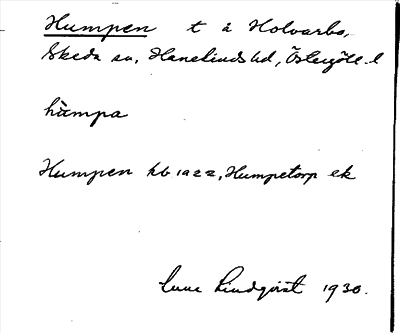 Humpen t å Holvarbo,
Skeda sn, Hanekinds hd, Östergötl. l
hùmpa
Humpen kb 1922, Humpetorp ek
Lindqvist 1930.